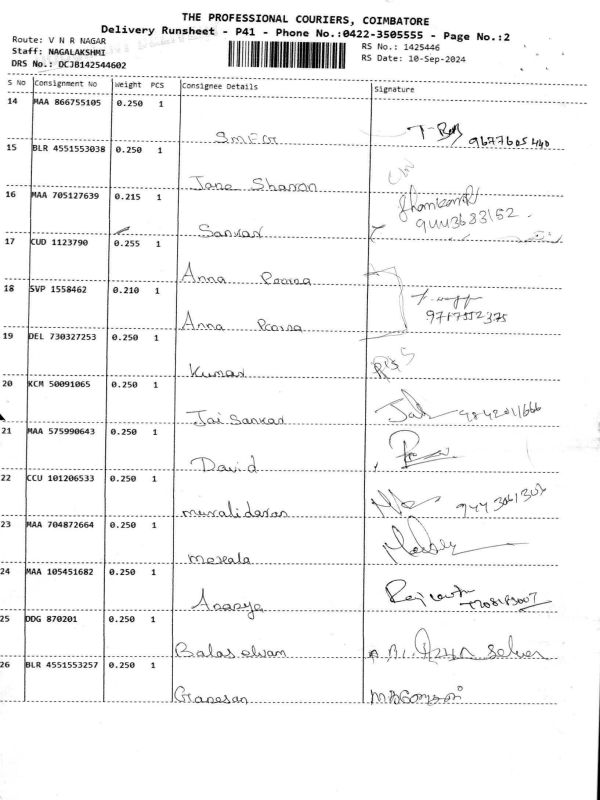 THE PROFESSIONAL COURIERS, COIMBATORE
Delivery Runsheet - P41 - Phone No.:0422-3505555 - Page No.:2
Route: V N R NAGAR
Staff: NAGALAKSHMI
DRS No.: DCJB142544602
RS No.: 1425446
RS Date: 10-Sep-2024
S No Consignment No Weight PCS Consignee Details Signature
14 MAA 866755105 0.250 1
SMEGT 9677605440
15 BLR 4551553038 0.250 1
Jane Sharon
16 MAA 705127639 0.215 1
Sankar 9443633152
17 CUD 1123790 0.255 1
Anna Poorna
18 SVP 1558462 0.210 1
Anna Poorna 9717552375
19 DEL 730327253 0.250 1
Kumar
20 KCM 50091065 0.250 1
Jai Sankar 9842011666
21 MAA 575990643 0.250 1
David
22 CCU 101206533 0.250 1
muralidaran
23 MAA 704872664 0.250 1
24 MAA 105451682 0.250 1
25 DDG 870201 0.250 1
Balaselvam
26 BLR 4551553257 0.250 1
Ganesan